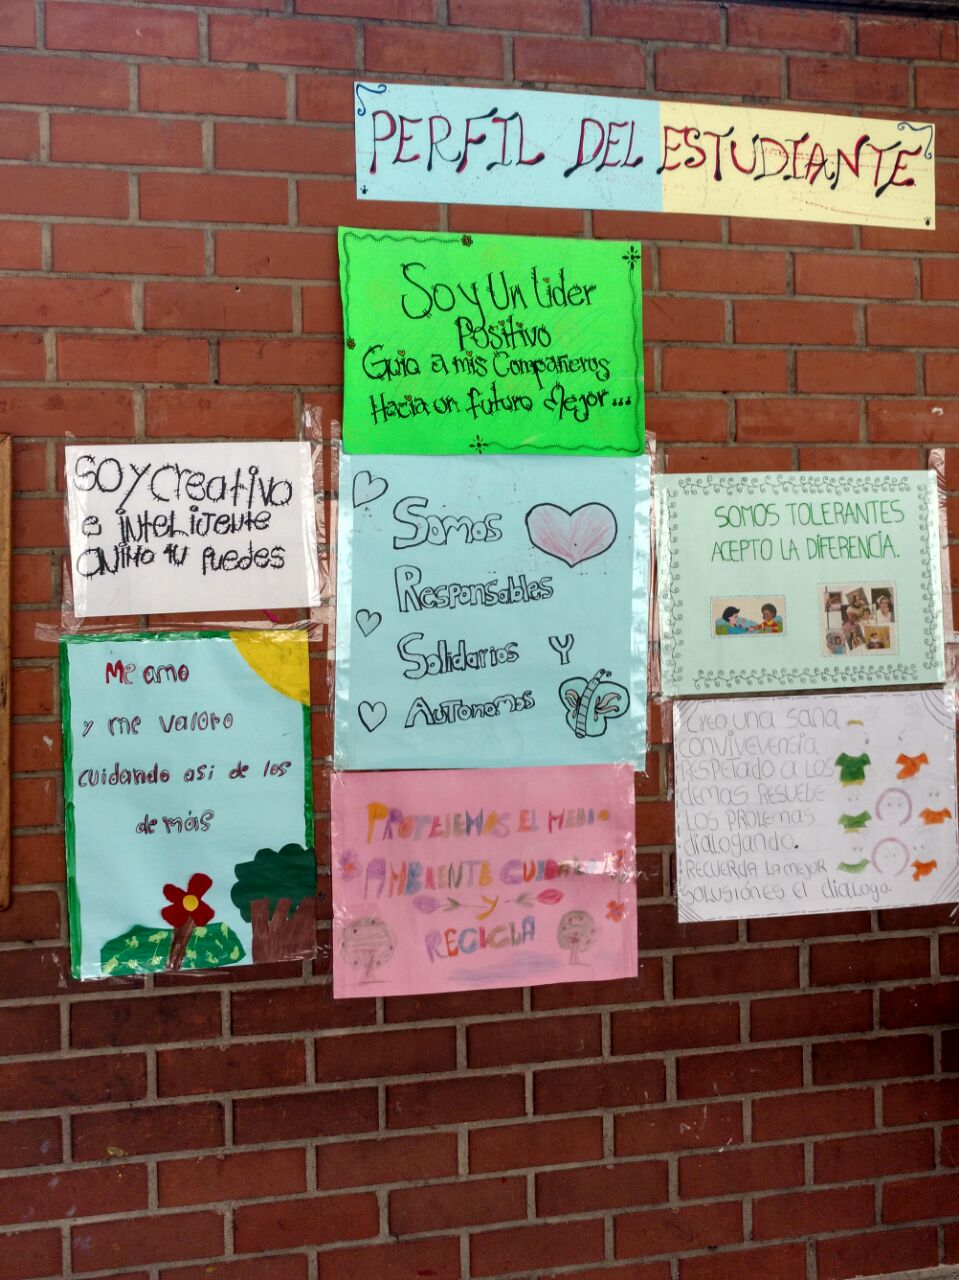 PERFIL DEL ESTUDIANTE
Soy Un Lider
Positivo
Guio a mis Compañeros
Hacia un futuro Mejor...
SOY Creativo
e inteLijente
ANiMO tU Puedes
Somos
Responsables
Solidarios Y
Autonomos
SOMOS TOLERANTES
ACEPTO LA DIFERENCIA.
Me amo
y me valoro
cuidando asi de los
demás
PROTEJEMOS EL MEDIO
AMBIENTE
Y
RECICLA
Creo una sana
convivevensia
RESPETADO a LOS
demas RESUEBE
LOS PROLEMAS
dialogando.
RECUERDA La mejor
SOLUSIÓNES El dialogo.